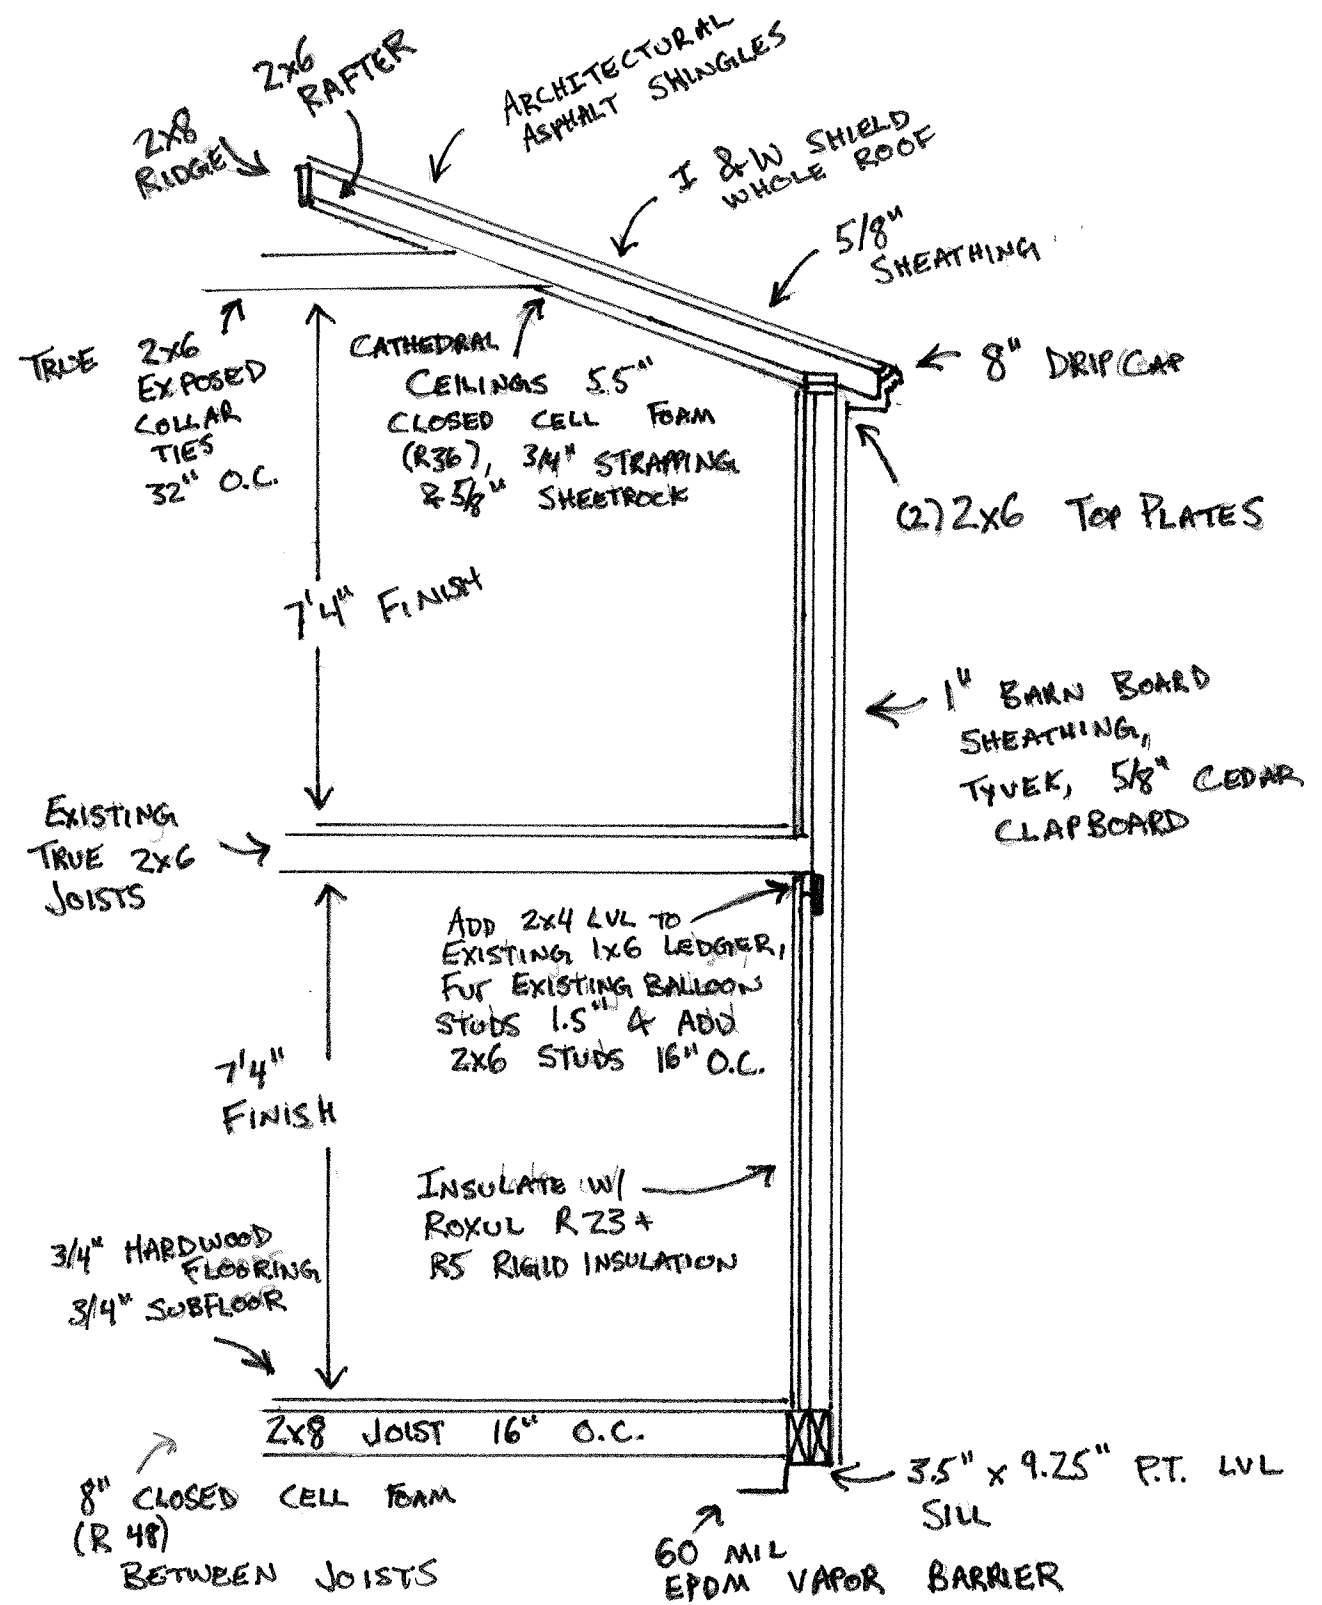 2x6
RAFTER
ARCHITECTURAL
ASPHALT SHINGLES
2x8
RIDGE
I & W SHIELD
WHOLE ROOF
5/8"
SHEATHING
TRUE 2x6
EXPOSED
COLLAR
TIES
32" O.C.
CATHEDRAL
CEILINGS 5.5"
CLOSED CELL FOAM
(R36), 3/4" STRAPPING
& 5/8" SHEETROCK
8" DRIP CAP
(2) 2x6 TOP PLATES
7'4" FINISH
1" BARN BOARD
SHEATHING,
TYVEK, 5/8" CEDAR
CLAPBOARD
EXISTING
TRUE 2x6
JOISTS
ADD 2x4 LVL TO
EXISTING 1x6 LEDGER,
FUR EXISTING BALLOON
STUDS 1.5" & ADD
2x6 STUDS 16" O.C.
7'4"
FINISH
INSULATE W/
ROXUL R23 +
R5 RIGID INSULATION
3/4" HARDWOOD
FLOORING
3/4" SUBFLOOR
2x8 JOIST 16" O.C.
8" CLOSED CELL FOAM
(R 48)
BETWEEN JOISTS
3.5" x 9.25" P.T. LVL
SILL
60 MIL
EPDM VAPOR BARRIER